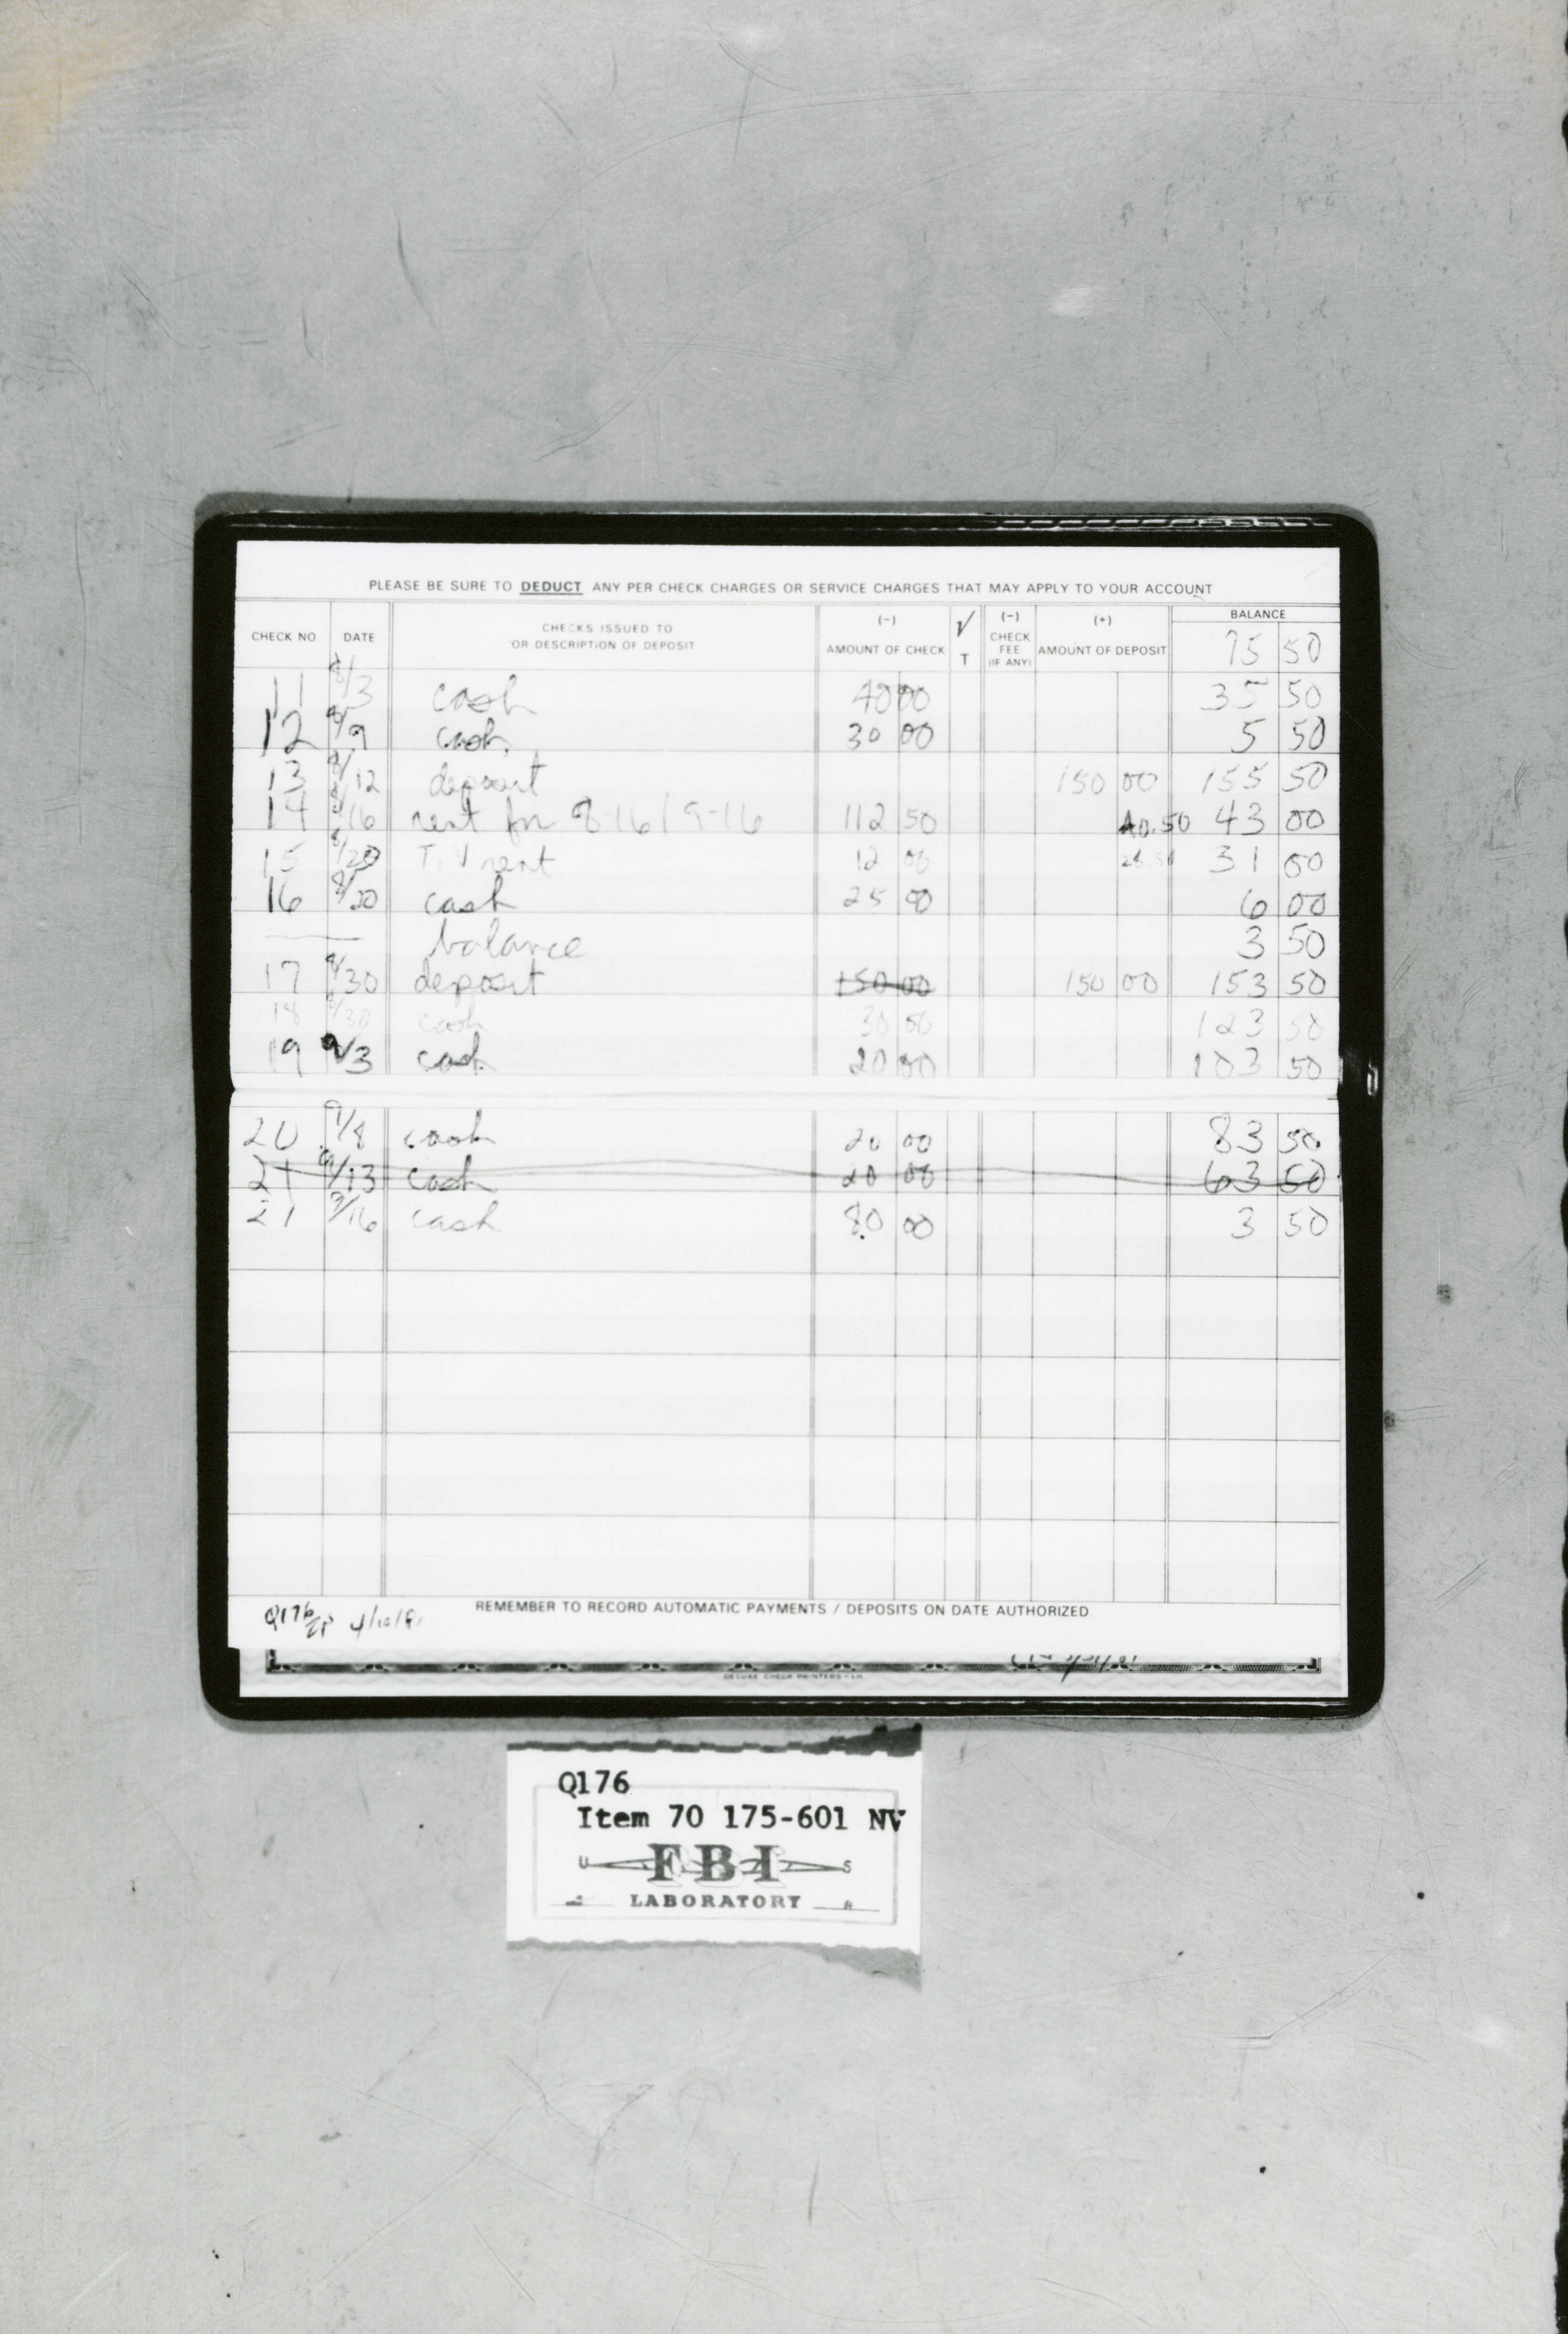 PLEASE BE SURE TO DEDUCT ANY PER CHECK CHARGES OR SERVICE CHARGES THAT MAY APPLY TO YOUR ACCOUNT
CHECK NO DATE CHECKS ISSUED TO OR DESCRIPTION OF DEPOSIT (-) AMOUNT OF CHECK √ T (-) CHECK FEE (IF ANY) (+) AMOUNT OF DEPOSIT BALANCE
75 50
11 8/3 cash 40 00 35 50
12 8/9 cash 30 00 5 50
13 8/12 deposit 150 00 155 50
14 8/16 rent for 8-16/9-16 112 50 40.50 43 00
15 8/20 T.V rent 12 00 31 00
16 8/20 cash 25 00 6 00
balance 3 50
17 8/30 deposit 150 00 150 00 153 50
18 8/30 cash 30 00 123 50
19 9/3 cash 20 00 103 50
20 9/8 cash 20 00 83 50
21 9/13 cash 20 00 63 50
21 9/16 cash 80 00 3 50
REMEMBER TO RECORD AUTOMATIC PAYMENTS / DEPOSITS ON DATE AUTHORIZED
Q176
DELUXE CHECK PRINTERS
Q176
Item 70 175-601 NV
U FBI S
LABORATORY